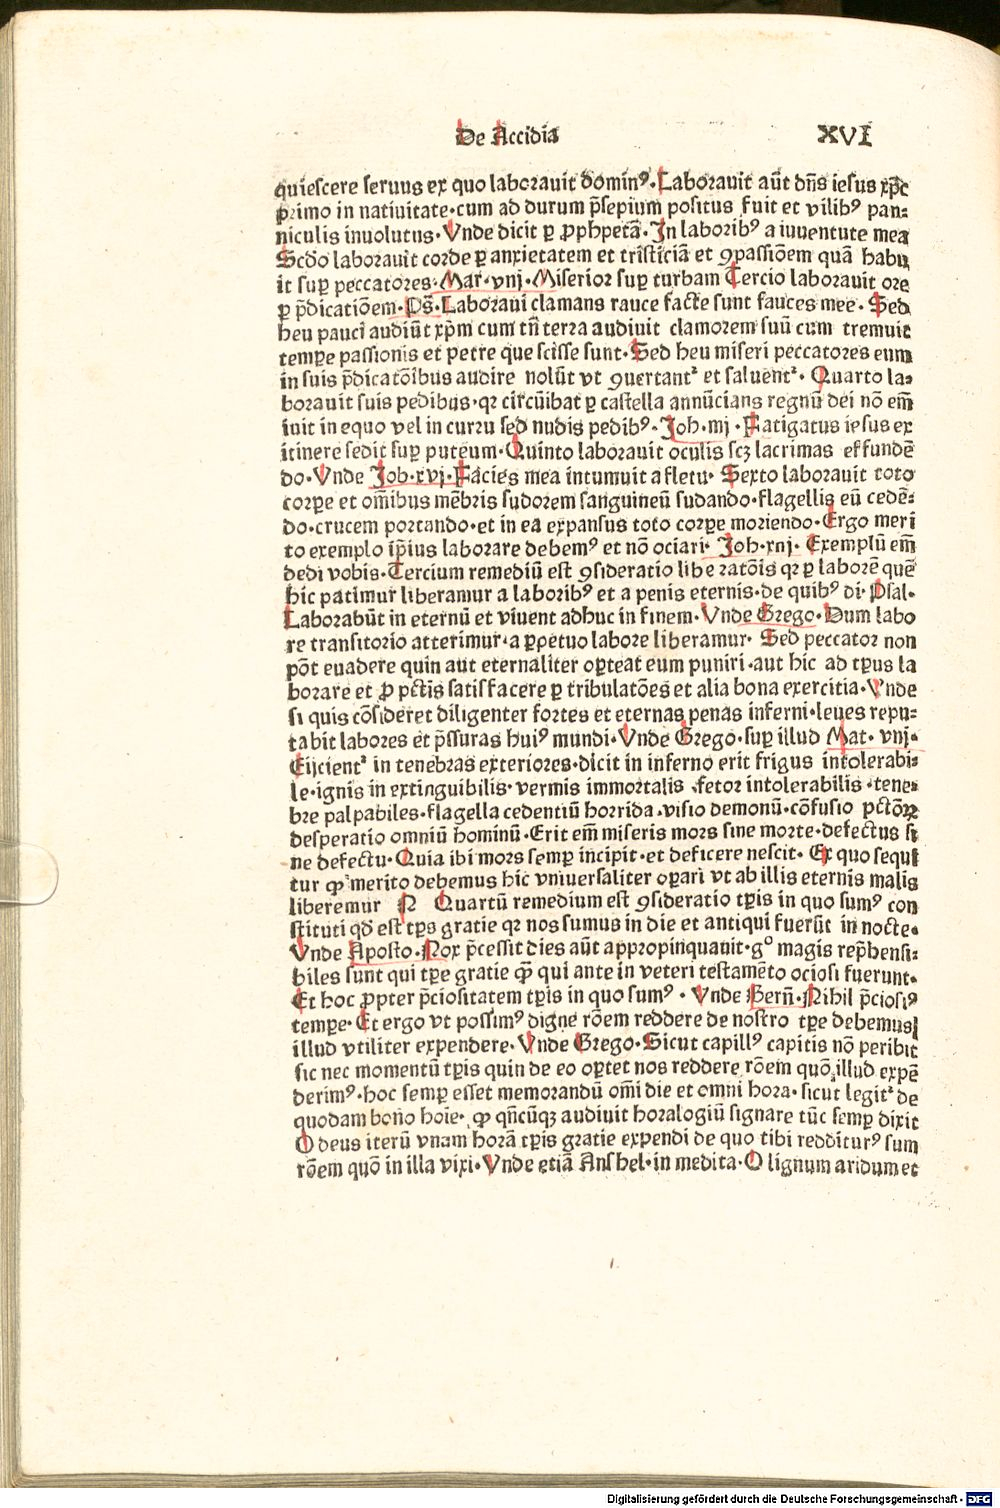 De Accidia XVI
quiescere seruus ex quo laborauit dominꝰ. Laborauit aūt dn̄s iesus xp̄c
primo in natiuitate·cum ad durum p̄sepium positus fuit et vilibꝰ pan⸗
niculis inuolutus· Vnde dicit ꝑ ꝓphetā· In laboribꝰ a iuuentute mea
Scd̄o laborauit corde ꝑ anxietatem et tristiciā et ꝯpassiōem quā habu
it suꝑ peccatores· Mar·vnj·Miserior suꝑ turbam Tercio laborauit ore
ꝑ p̄dicatiōem·Ps̄·Laboraui clamans rauce facte sunt fauces mee· Sed
heu pauci audiūt xp̄m cum tn̄ terra audiuit clamorem suū cum tremuit
tempe passionis et petre que scisse sunt·Sed heu miseri peccatores eum
in suis p̄dicatōibus audire nolūt vt ꝯuertantᷣ et saluentᷣ· Quarto la⸗
borauit suis pedibus·qꝛ circūibat ꝑ castella annūcians regnū dei nō em̄
iuit in equo vel in curru sed nudis pedibꝰ·Joh·iiij·Fatigatus iesus ex
itinere sedit suꝑ puteum·Quinto laborauit oculis scꝫ lacrimas effundē
do·Vnde Job·xvj·Facies mea intumuit a fletu· Sexto laborauit toto
corꝑe et om̄ibus mēbris sudorem sanguineū sudando·flagellis eū cedē⸗
do·crucem portando·et in ea expansus toto corꝑe moriendo·Ergo meri
to exemplo ip̄ius laborare debemꝰ et nō ociari· Joh·xiij· Exemplū em̄
dedi vobis·Tercium remediū est ꝯsideratio libe ratōis qꝛ ꝑ laborē quē
hic patimur liberamur a laboribꝰ et a penis eternis·de quibꝰ di· Psal·
Laborabūt in eternū et viuent adhuc in finem·Vnde Grego·Dum labo
re transitorio atterimur·a ꝑpetuo labore liberamur· Sed peccator non
pōt euadere quin aut eternaliter oꝑteat eum puniri·aut hic ad tp̄us la
borare et ꝓ pctīs satisfacere ꝑ tribulatōes et alia bona exercitia·Vnde
si quis cōsideret diligenter fortes et eternas penas inferni·leues repu⸗
tabit labores et p̄ssuras huiꝰ mundi·Vnde Grego·suꝑ illud Mat· vnj·
Eijcientᷣ in tenebras exteriores·dicit in inferno erit frigus intolerabi⸗
le·ignis inextinguibilis·vermis immortalis ·fetor intolerabilis·tene⸗
bre palpabiles·flagella cedentiū horrida·visio demonū·cōfusio pctōꝝ
desperatio omniū hominū·Erit em̄ miseris mors sine morte·defectus si
ne defectu·Quia ibi mors semꝑ incipit·et deficere nescit· Ex quo sequi
tur ꝙ merito debemus hic vniuersaliter oꝑari vt ab illis eternis malis
liberemur Quartū remedium est ꝯsideratio tp̄is in quo sumꝰ con
stituti qd̄ est tp̄s gratie qꝛ nos sumus in die et antiqui fuerūt in nocte·
Vnde Aposto·Nox p̄cessit dies aūt appropinquauit·gº magis rep̄hensi⸗
biles sunt qui tꝑe gratie ꝙ̄ qui ante in veteri testamēto ociosi fuerunt·
Et hoc ꝓpter p̄ciositatem tp̄is in quo sumꝰ · Vnde Bern̄·Nihil p̄ciosiꝰ
tempe· Et ergo vt possimꝰ digne rōem reddere de nostro tꝑe debemus
illud vtiliter expendere·Vnde Grego·Sicut capillꝰ capitis nō peribit
sic nec momentū tp̄is quin de eo oꝑtet nos reddere rōem quō illud expē
derimꝰ·hoc semꝑ esset memorandū om̄i die et omni hora·sicut legitᷣ de
quodam bono hoie· ꝙ qn̄cūqꝫ audiuit horalogiū signare tūc semꝑ dixit
O deus iterū vnam horā tp̄is gratie expendi de quo tibi redditurꝰ sum
rōem quō in illa vixi·Vnde etiā Anshel·in medita·O lignum aridum et
Digitalisierung gefördert durch die Deutsche Forschungsgemeinschaft - DFG